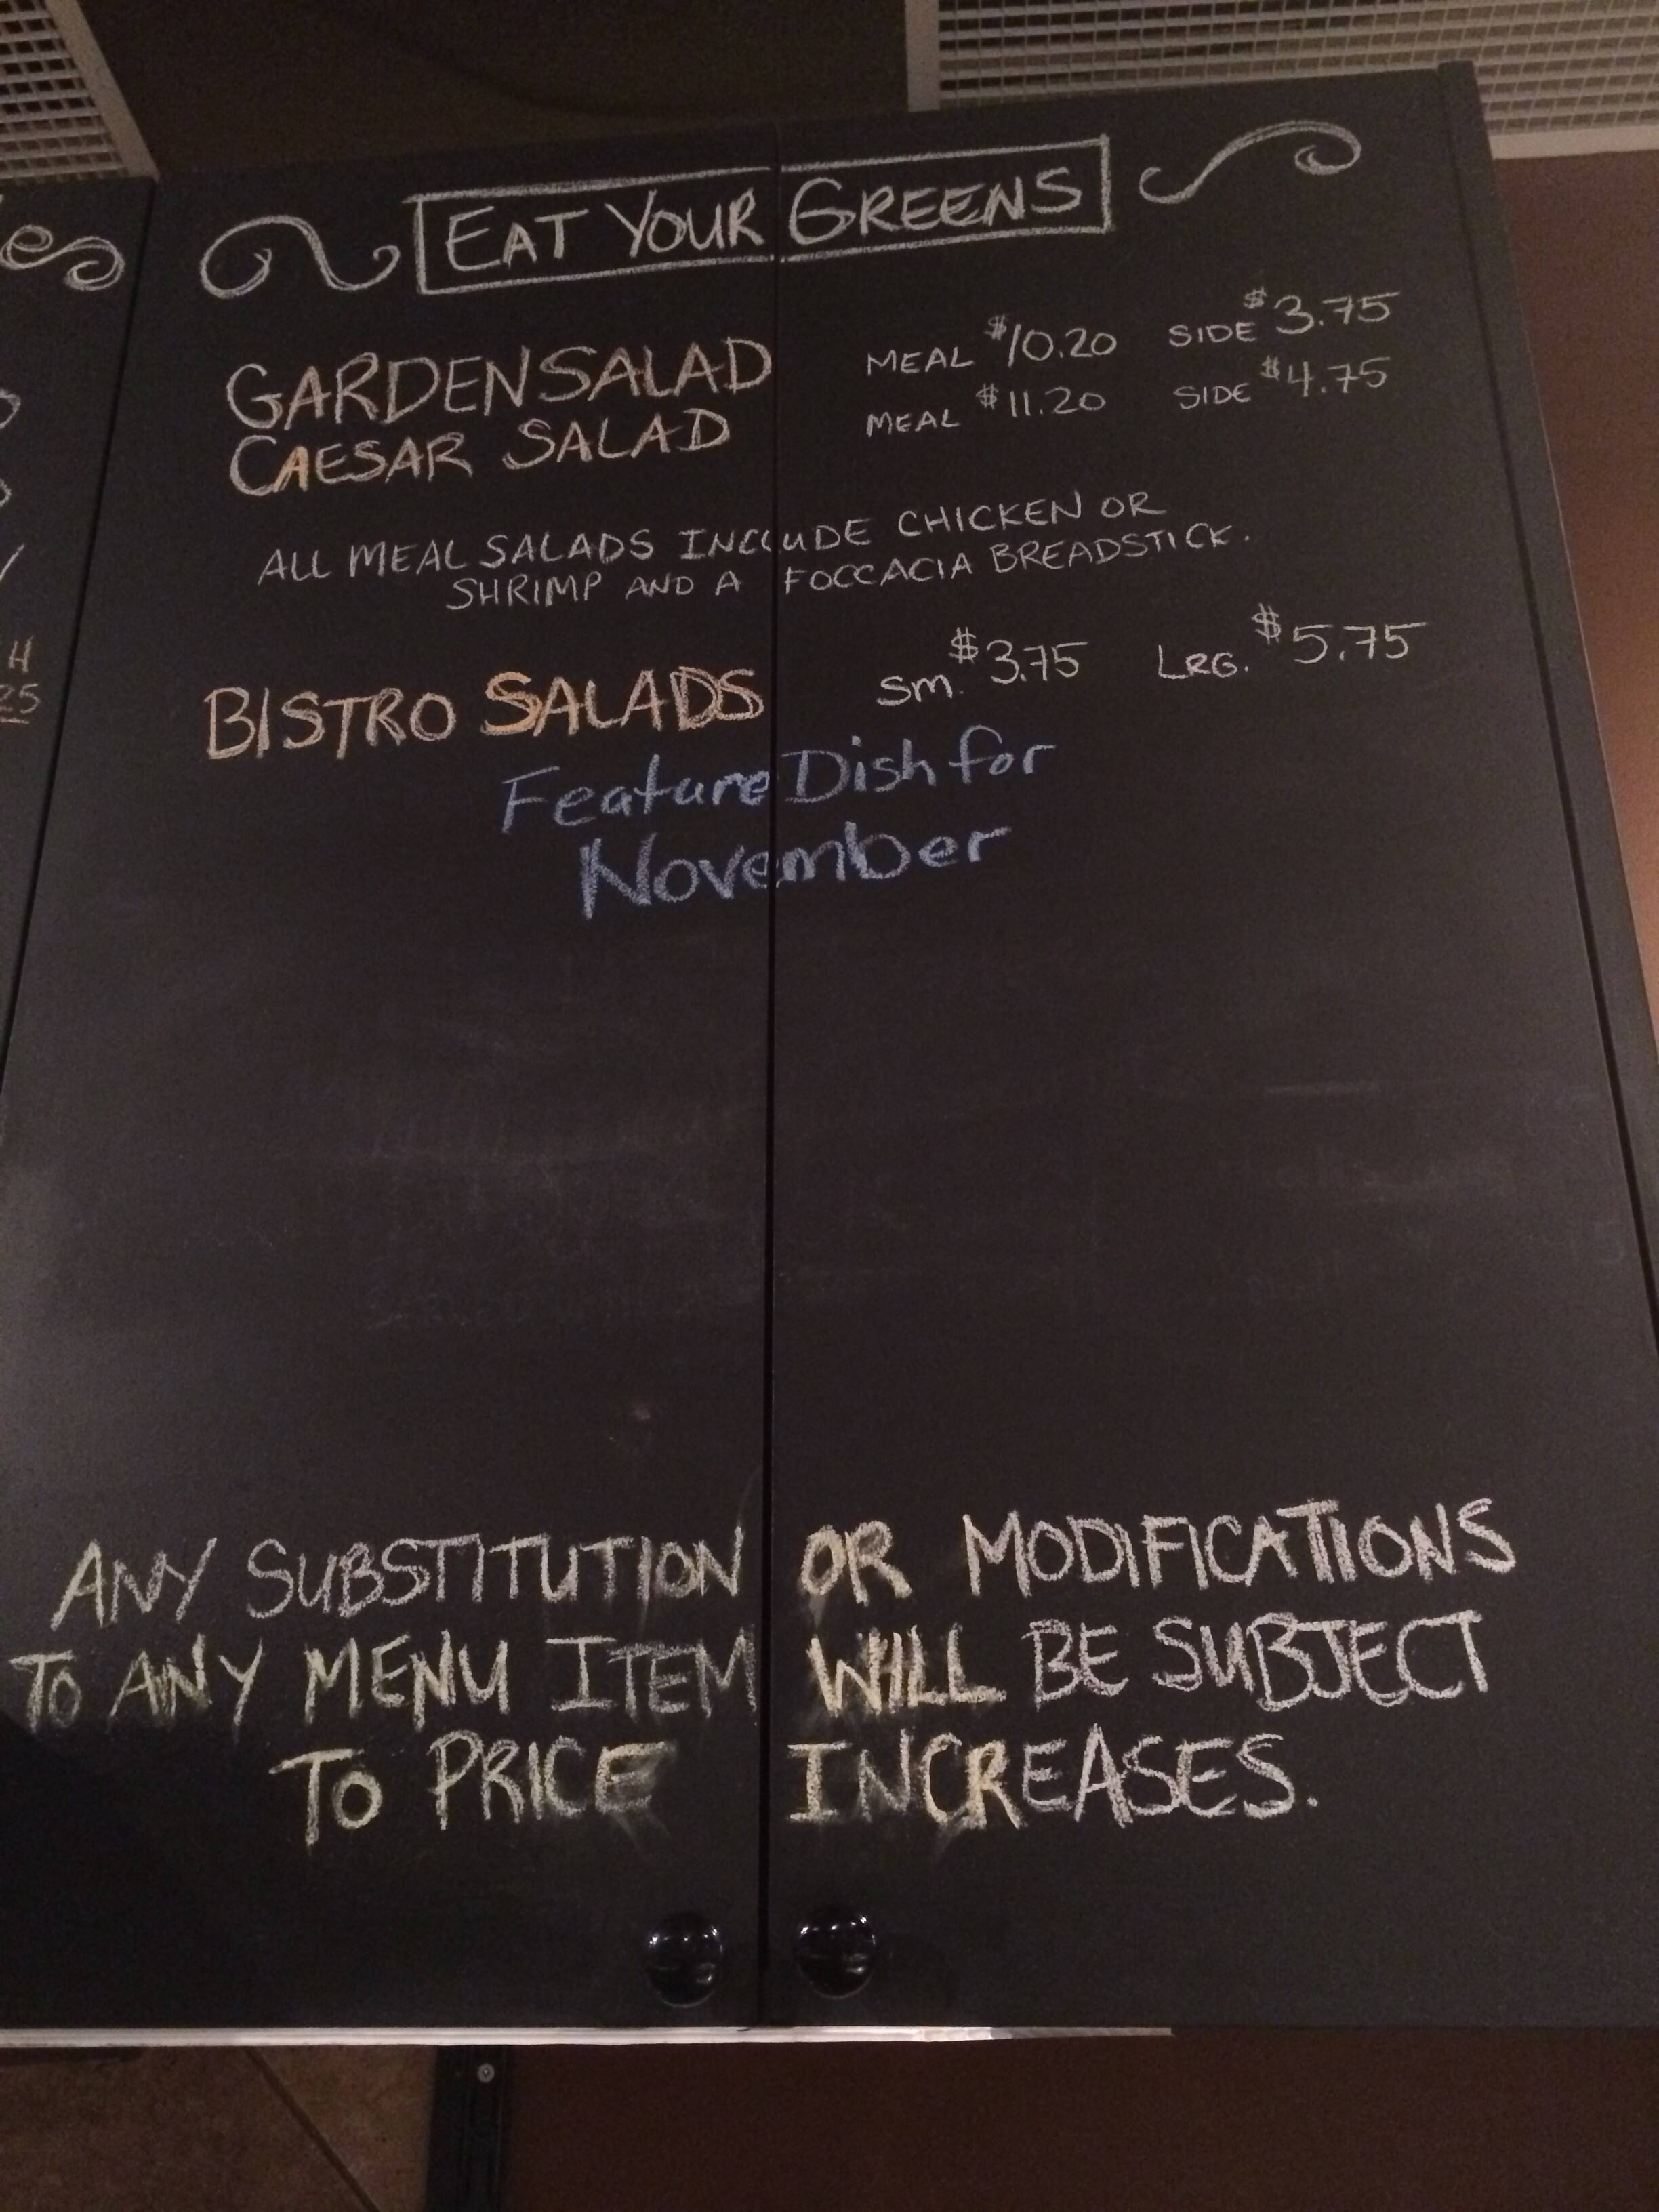 EAT YOUR GREENS
GARDEN SALAD MEAL $10.20 SIDE $3.75
CAESAR SALAD MEAL $11.20 SIDE $4.75
ALL MEAL SALADS INCLUDE CHICKEN OR
SHRIMP AND A FOCCACIA BREADSTICK.
BISTRO SALADS Sm. $3.75 LRG. $5.75
Feature Dish for
November
ANY SUBSTITUTION OR MODIFICATIONS
TO ANY MENU ITEM WILL BE SUBJECT
TO PRICE INCREASES.